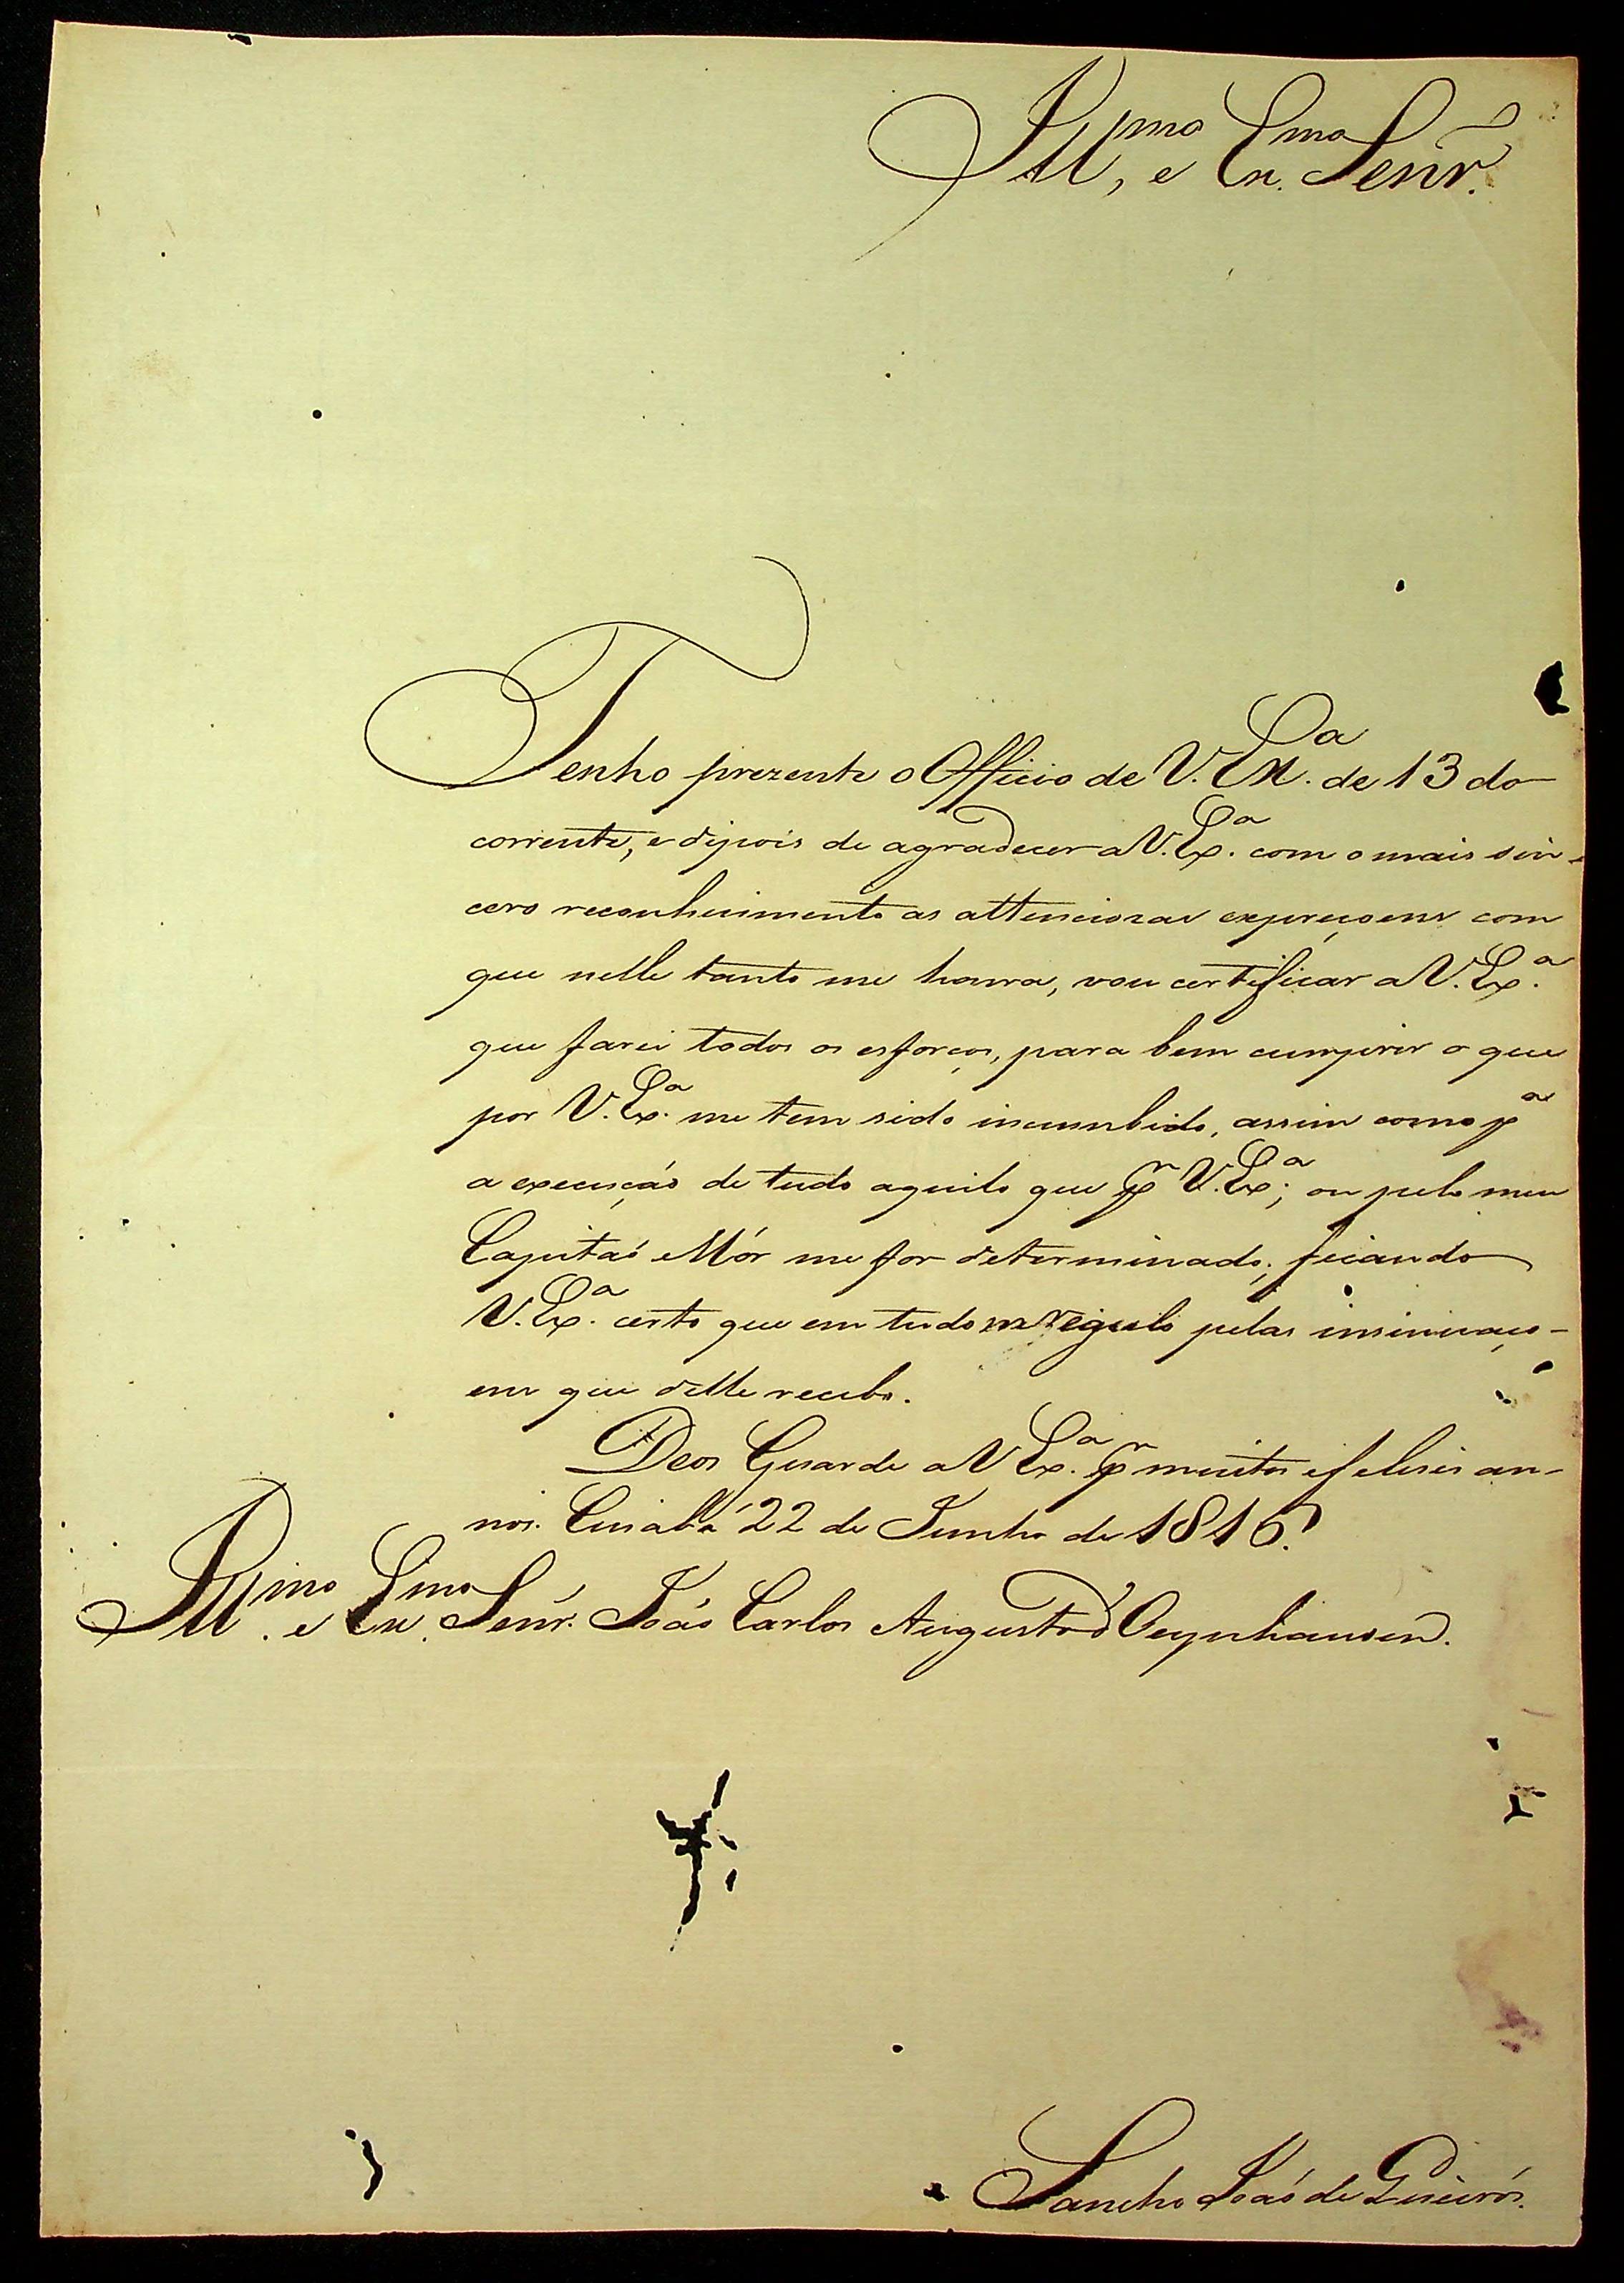 Ill.mo, e Ex.mo Senr.
Tenho prezente o Officio de V. Ex.a de 13 do
corrente, e dipois de agradecer a V. Ex.a com o mais sin-
cero reconhecimento as attenciozas expreçoens com
que nelle tanto me honra, vou certificar a V. Ex.a
que farei todos os esforços, para bem cumprir o que
por V. Ex.a me tem sido incumbido, assim como p.a
a execução de tudo aquilo que p.r V. Ex.a; ou pelo meu
Capitaó Mór me for determinado; ficando
V. Ex.a certo que em tudo me regulo pelas insinuaço-
ens que delle recebo.
Deos Guarde a V Ex.a p.r muitos e felises an-
nos. Cuiabá 22 de Junho de 1816.
Ill.mo e Ex.mo Senr. Joáo Carlos Augusto d'Oeynhausen.
Sancho Joaó de Queirós.